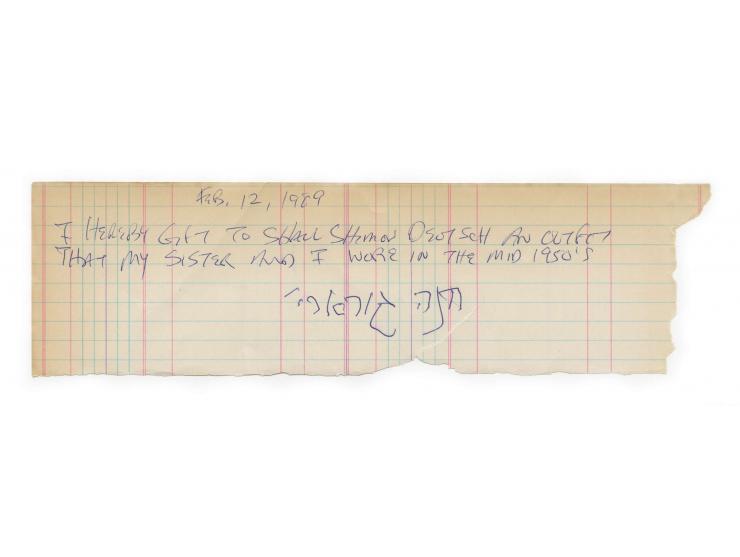 FEB. 12, 1989
I HEREBY GIFT TO SHAUL SHIMON DEUTSCH AN OUTFIT
THAT MY SISTER AND I WORE IN THE MID 1950'S
חנה גורארי'